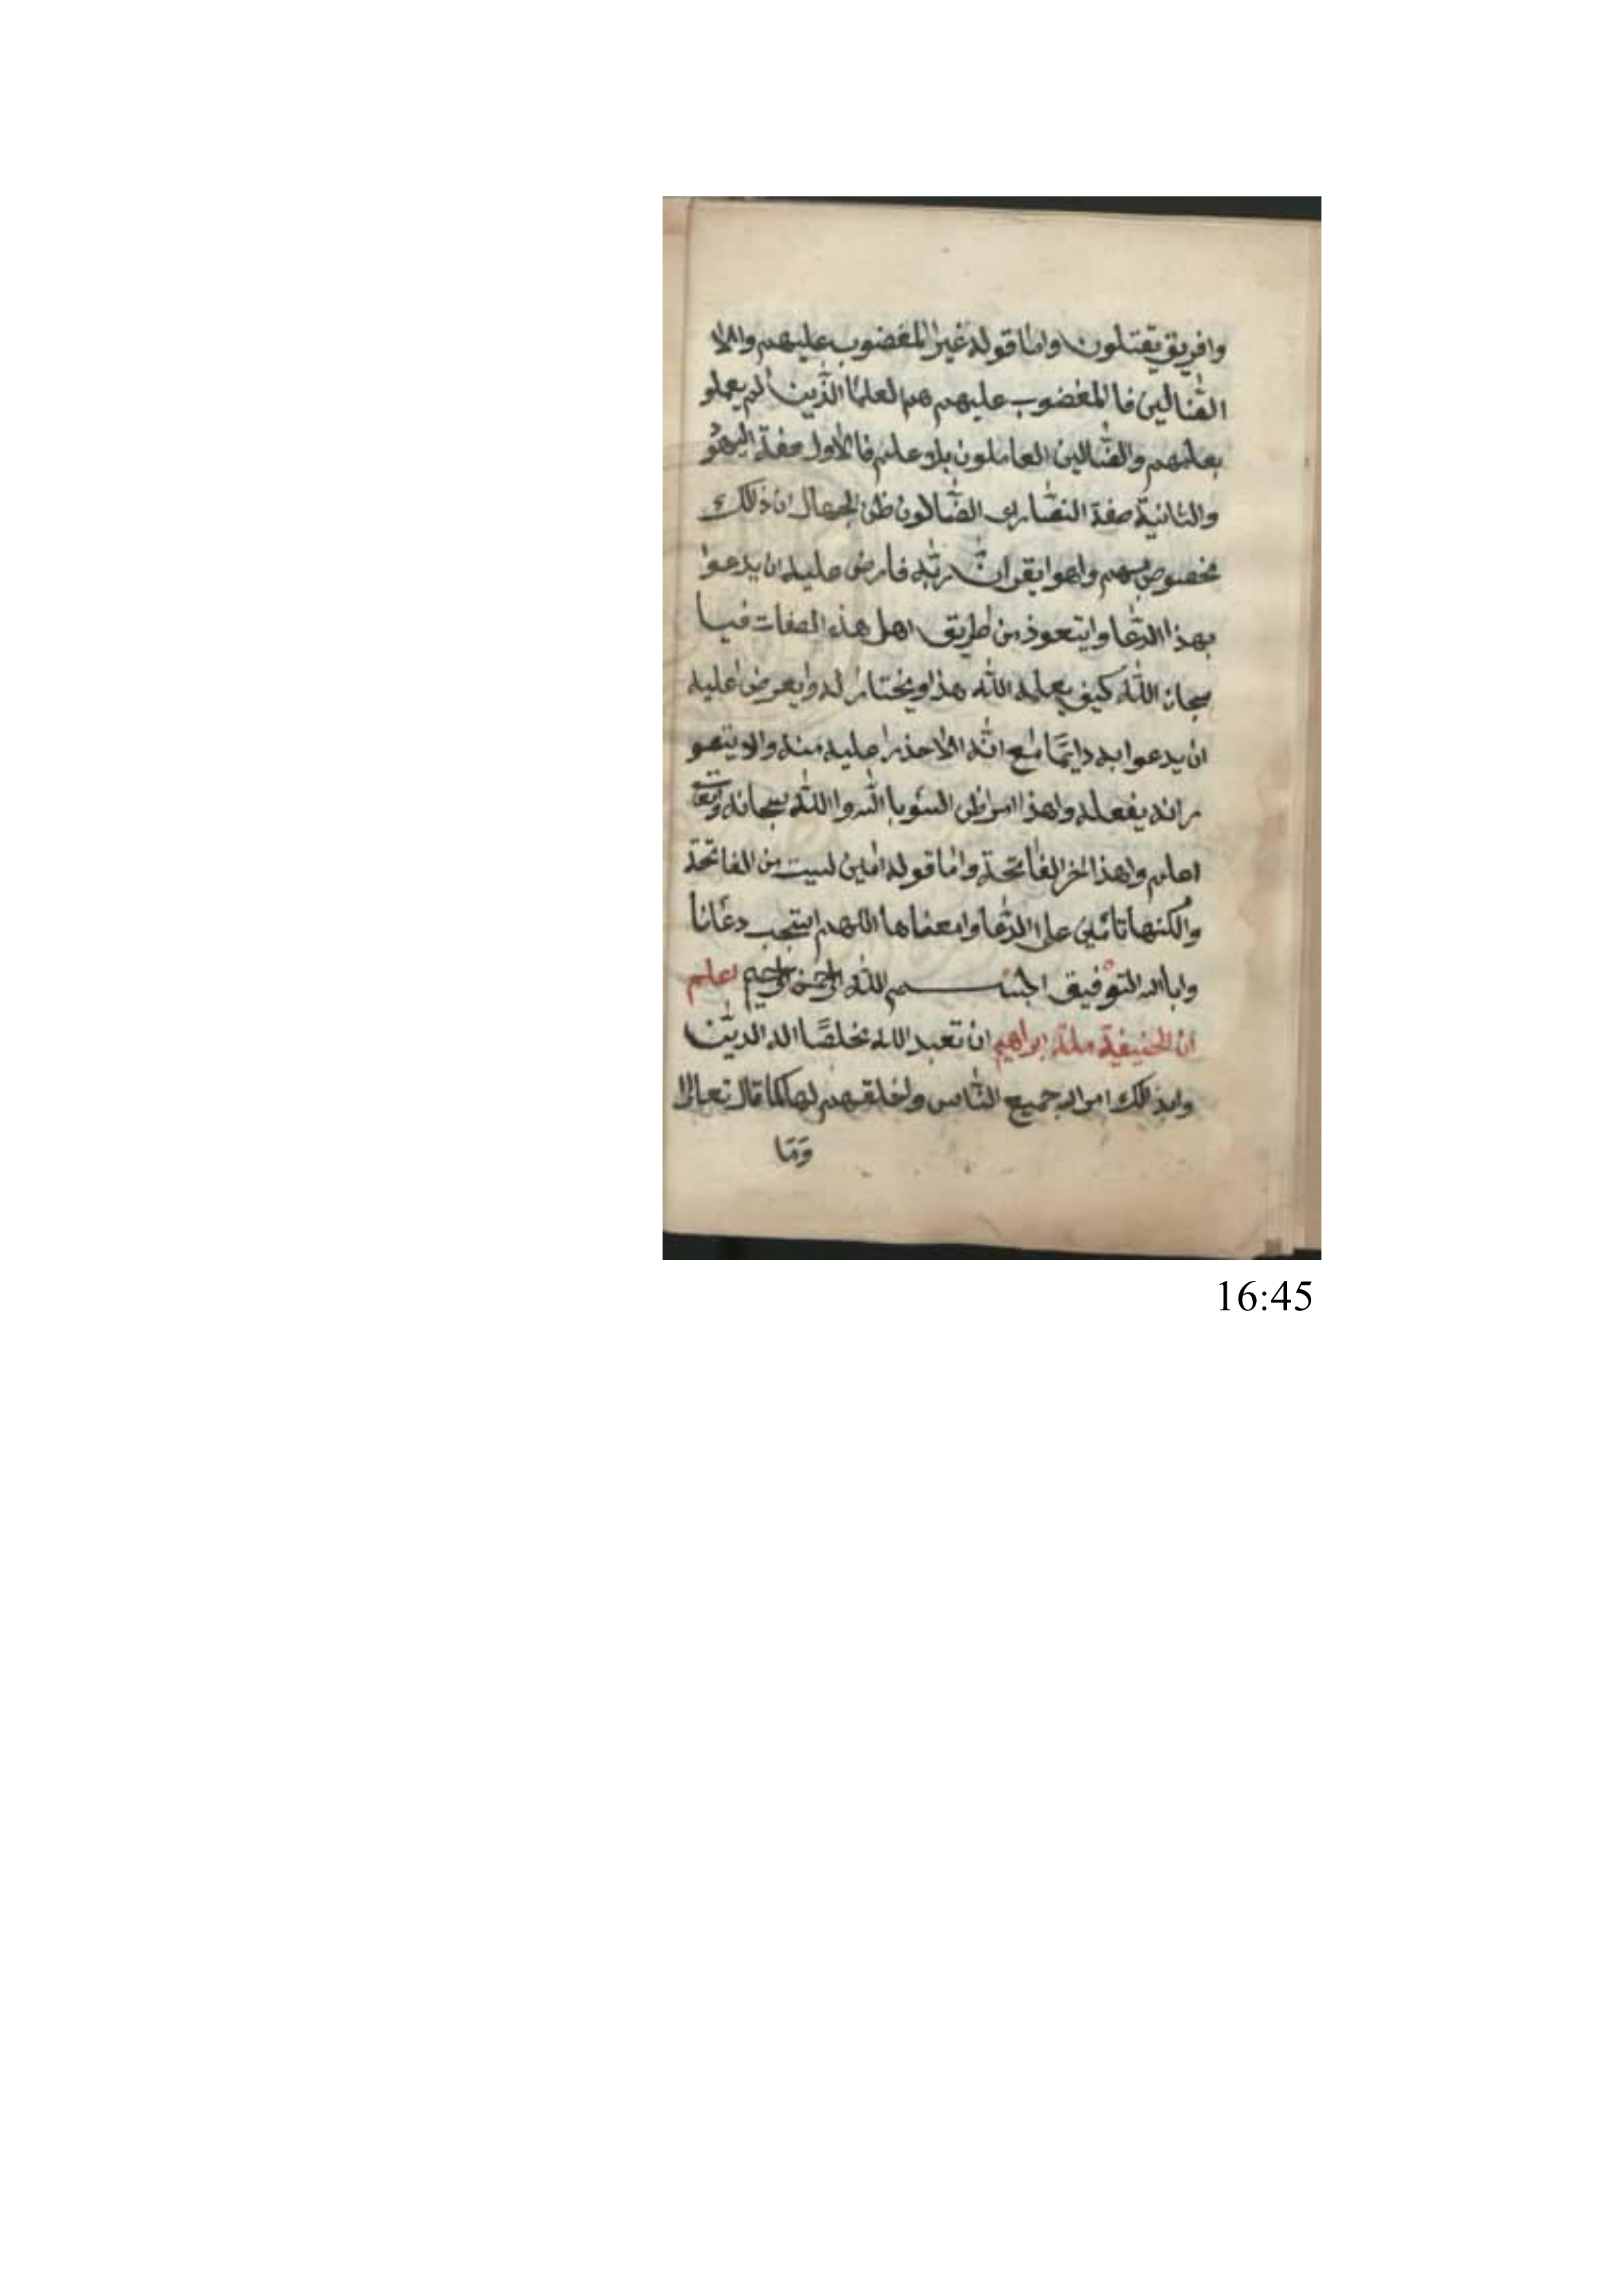 وافريق يقتلون واما قوله غير المغضوب عليهم والا
الضالين فا المغضوب عليهم هم لعلما الذين لم يعملو
بعلمهم والضالين العاملون بلا علم فا الاول صفة اليهو
والثانية صفة النصارى الضالون ظن الجهال ان ذالك
مخصوص بهم واهوا يقر ان ربه فارض عليه ان يدعوا
بهذا الدعا وايتعوذ من طريق اهل هذه الصفات فيا
سبحان الله كيف يعلمه الله هذا ويختار له وايعرض عليه
ان يدعوا به دايما مع انه الا حذر عليه منه والا يتصو
ر انه يفعله واهذا من ظن السو با الله والله سبحانه وتعا
اعلم واهذا اخر الفاتحة واما قوله امين ليست من الفاتحة
والكنها تامين على الدعا وامعناها اللهم استجب دعانا
وابا الله التوفيق بسم الله الرحمن الرحيم اعلم
ان الحنيفية ملة ابراهيم ان تعبد الله مخلصا له الدين
وابذالك امر الله جميع الناس واخلقهم لها كما قال تعالا
وما
16:45